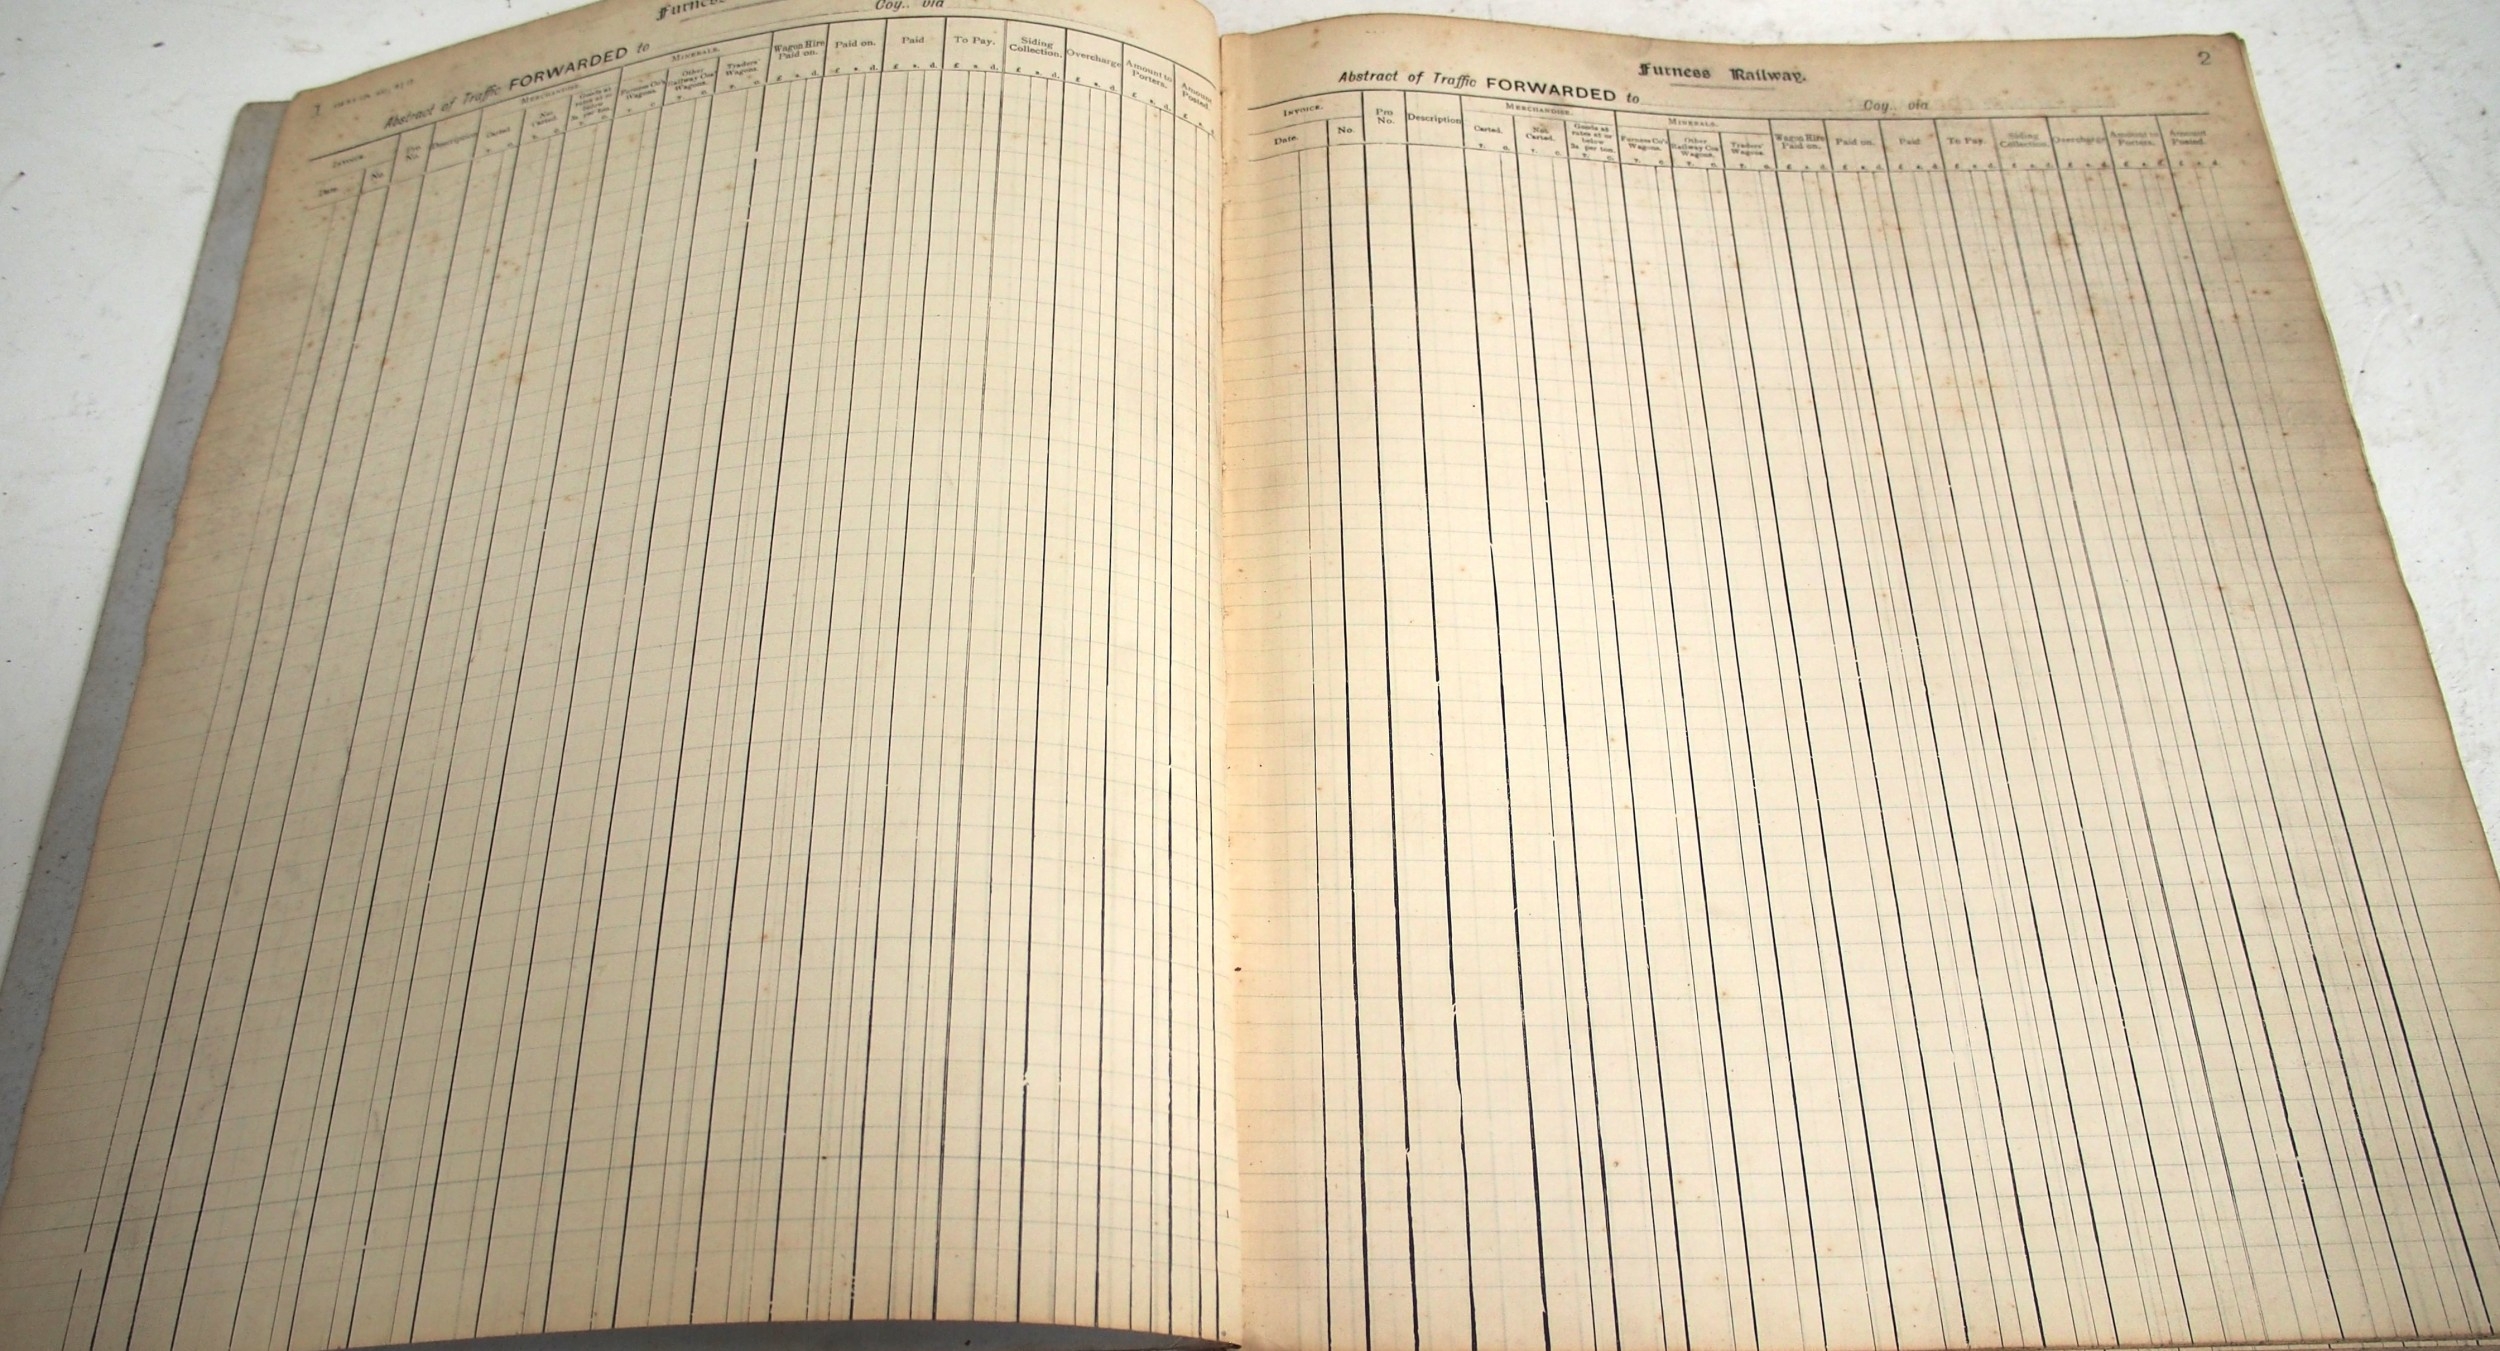 1
Furness
Abstract of Traffic FORWARDED to Coy.. via
INVOICE. Pro No. Description MERCHANDISE. MINERALS. Wagon Hire Paid on. Paid on. Paid To Pay. Siding Collection. Overcharge Amount to Porters. Amount Posted.
Date. No. Carted. Not Carted. Goods at rates at or below per ton. Furness Co's Wagons. Other Railway Cos' Wagons. Traders' Wagons.
T. C. T. C. T. C. T. C. T. C. T. C. £ s. d. £ s. d. £ s. d. £ s. d. £ s. d. £ s. d. £ s. d. £ s.
2
Furness Railway.
Abstract of Traffic FORWARDED to Coy.. via
INVOICE. Pro No. Description MERCHANDISE. MINERALS. Wagon Hire Paid on. Paid on. Paid To Pay. Siding Collection. Overcharge Amount to Porters. Amount Posted.
Date. No. Carted. Not Carted. Goods at rates at or below 5s per ton. Furness Co's Wagons. Other Railway Cos Wagons. Traders' Wagons.
T. C. T. C. T. C. T. C. T. C. T. C. £ s. d. £ s. d. £ s. d. £ s. d. £ s. d. £ s. d. £ s. d. £ s. d.